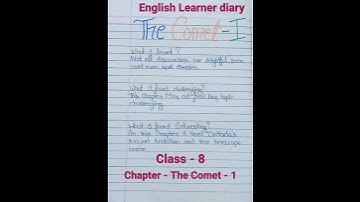 English Learner diary
The Comet - I
What I learnt?
Not all discoveries are delightful some
could even spell disaster.
What I found challenging?
This Chapter May not find Any topic
challenging
What I found Interesting?
In this Chapter I
Secret Ambition and the telescope
Class - 8
Chapter - The Comet - 1